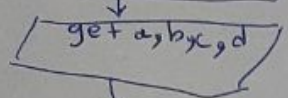 get a,b,c,d